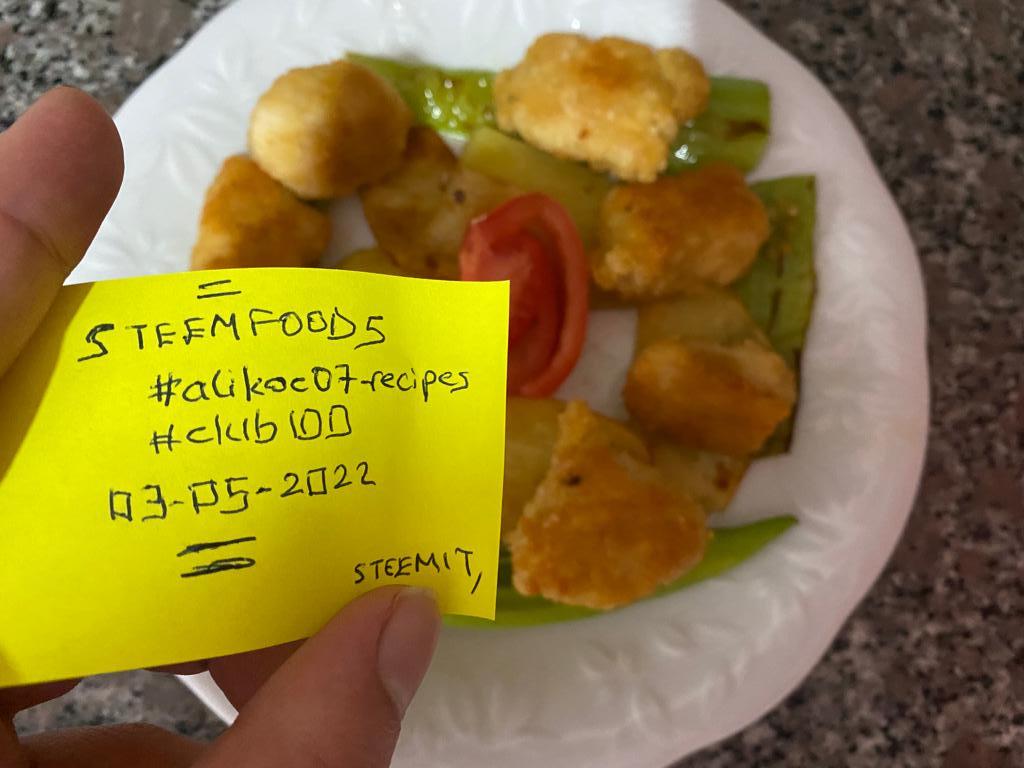 STEEMFOODS
#alikoc07-recipes
#club100
03-05-2022
STEEMIT,